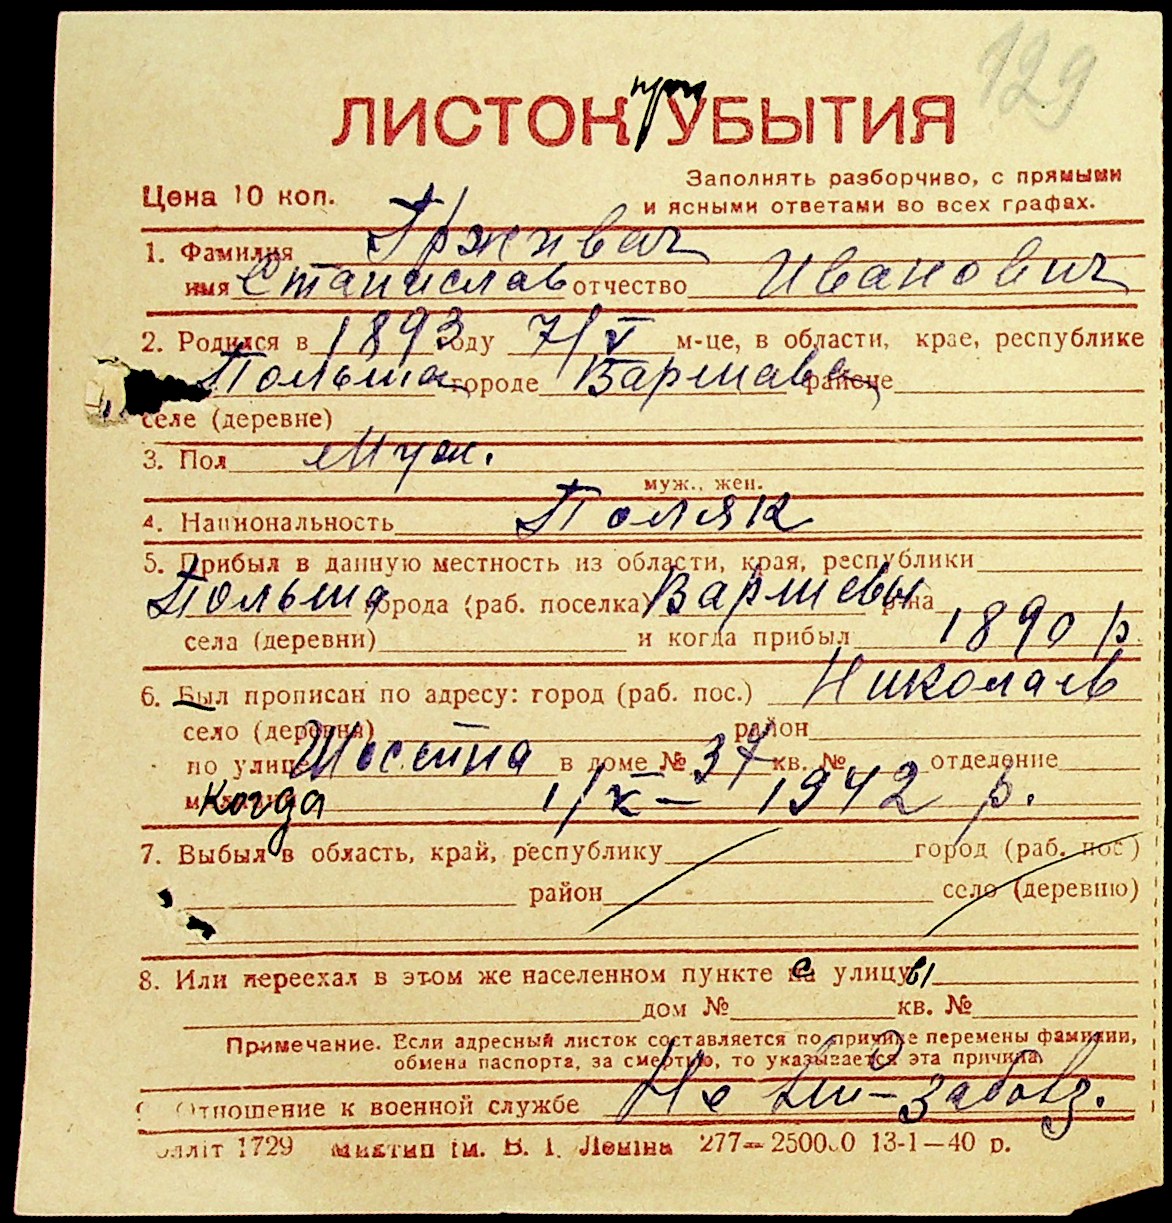 129
ЛИСТОК при УБЫТИЯ
Цена 10 коп.
Заполнять разборчиво, с прямыми
и ясными ответами во всех графах.
1. Фамилия Грживач
имя Станислав отчество Иванович
2. Родился в 1893 году 7/V м-це, в области, крае, республике
Польша городе Варшава районе
селе (деревне)
3. Пол Муж.
муж., жен.
4. Национальность Поляк
5. Прибыл в данную местность из области, края, республики
Польша города (раб. поселка) Варшевы р-на
села (деревни) и когда прибыл 1890 р.
6. Был прописан по адресу: город (раб. пос.) Николаев
село (деревня) район
по улице в доме № 37 кв. № отделение
Когда 1/X – 1942 р.
7. Выбыл в область, край, республику город (раб. пос.)
район село (деревню)
8. Или переехал в этом же населенном пункте с улицы
дом № кв. №
Примечание. Если адресный листок составляется по причине перемены фамилии,
обмена паспорта, за смертью, то указывается эта причина.
Отношение к военной службе Не
1729 ім. В. І. Леніна 277—250000 13-1—40 р.